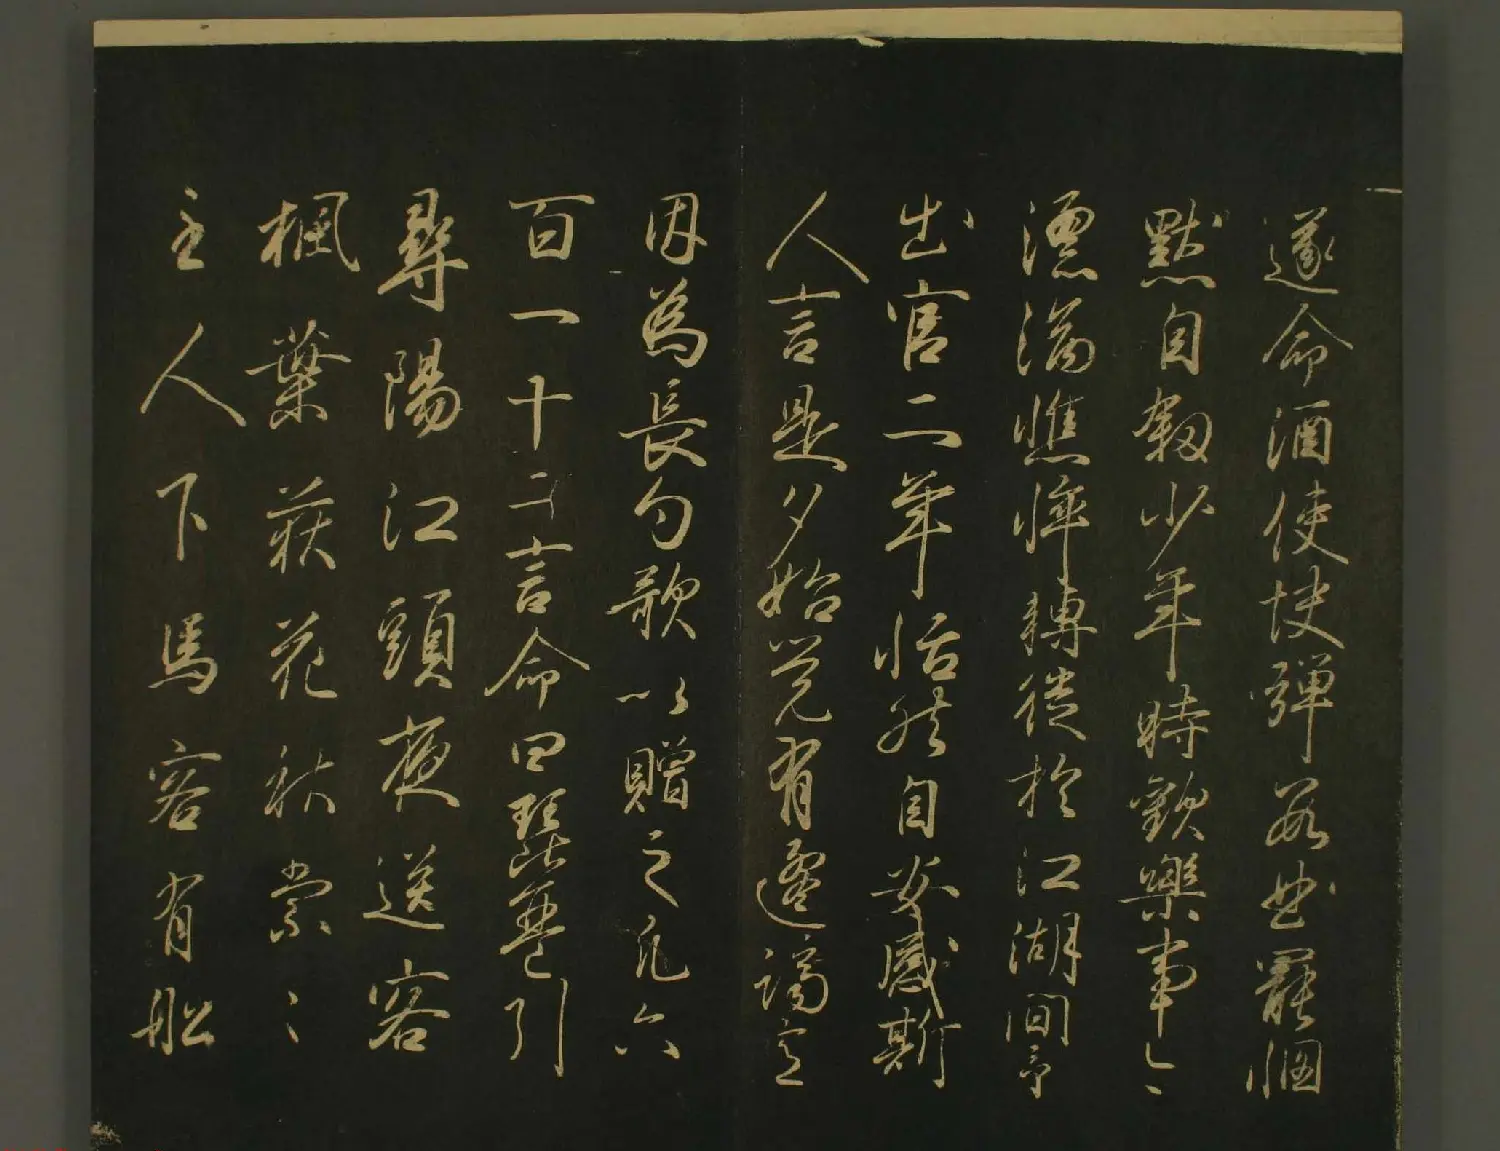 遂命酒使快彈數曲曲罷憫
默自敘少年時歡樂事今
漂淪憔悴轉徙於江湖間予
出官二年恬然自安感斯
人言是夕始覺有遷謫意
因為長句歌以贈之凡六
百一十二言命曰琵琶引
尋陽江頭夜送客
楓葉荻花秋索〻
主人下馬客有船